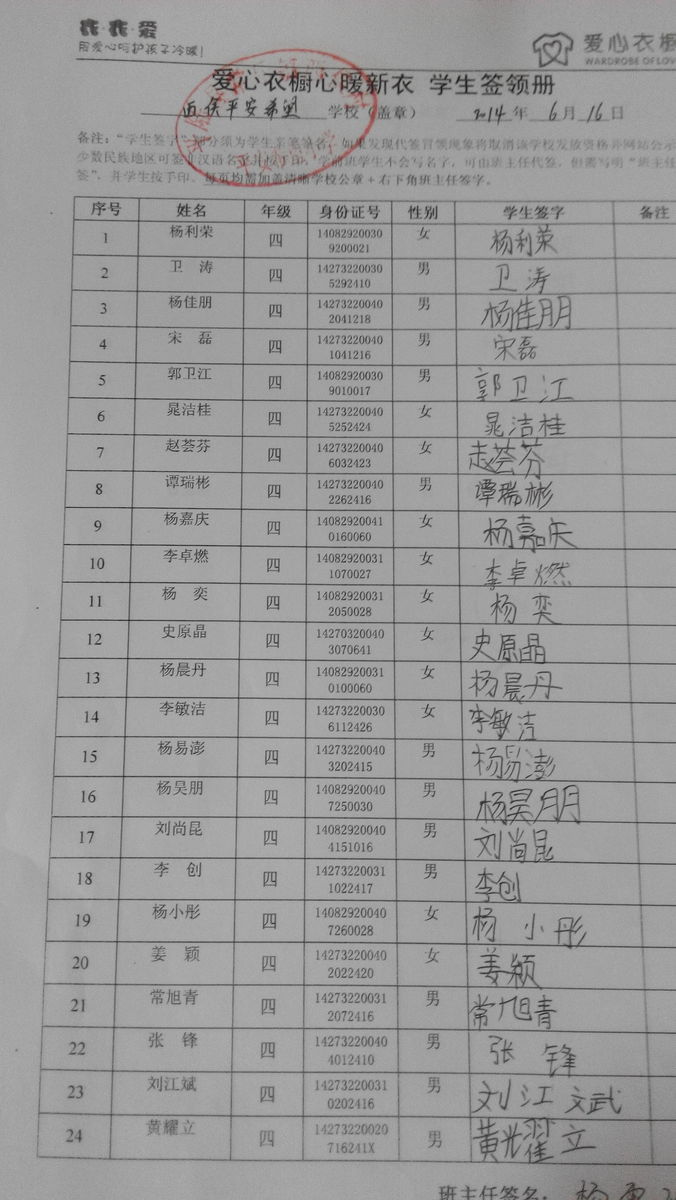 我·我·爱
用爱心呵护孩子冷暖!
爱心衣橱
WARDROBE OF LOVE
爱心衣橱心暖新衣 学生签领册
平安希望 学校(盖章) 2014年 6月16日
备注:“学生签字”部分须为学生亲笔签名,如果发现代签冒领现象将取消该学校发放资格并网站公示
少数民族地区可签非汉语名字并按手印。学前班学生不会写名字,可由班主任代签,但需写明“班主任
签”,并学生按手印。每页均需加盖清晰学校公章+右下角班主任签字。
序号 姓名 年级 身份证号 性别 学生签字 备注
1 杨利荣 四 140829200309200021 女 杨利荣
2 卫 涛 四 142732200305292410 男 卫 涛
3 杨佳朋 四 142732200402041218 男 杨佳朋
4 宋 磊 四 142732200401041216 男 宋磊
5 郭卫江 四 140829200309010017 男 郭卫江
6 晁洁桂 四 142732200405252424 女 晁洁桂
7 赵荟芬 四 142732200406032423 女 赵荟芬
8 谭瑞彬 四 142732200402262416 男 谭瑞彬
9 杨嘉庆 四 140829200410160060 女 杨嘉庆
10 李卓燃 四 140829200311070027 女 李卓燃
11 杨 奕 四 140829200312050028 女 杨 奕
12 史原晶 四 142703200403070641 女 史原晶
13 杨晨丹 四 140829200310100060 女 杨晨丹
14 李敏洁 四 142732200306112426 女 李敏洁
15 杨易澎 四 142732200403202415 男 杨易澎
16 杨昊朋 四 140829200407250030 男 杨昊朋
17 刘尚昆 四 140829200404151016 男 刘尚昆
18 李 创 四 142732200311022417 男 李创
19 杨小彤 四 140829200407260028 女 杨 小彤
20 姜 颖 四 142732200402022420 女 姜颖
21 常旭青 四 142732200312072416 男 常旭青
22 张 锋 四 142732200404012410 男 张 锋
23 刘江斌 四 142732200310202416 男 刘江斌
24 黄耀立 四 14273220020716241X 男 黄耀立
班主任签名: 杨